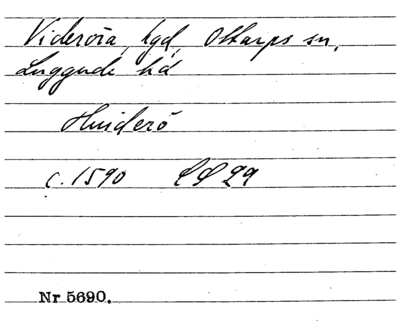 Videröra, lgd, Ottarps sn,
Luggude hd
Huiderö
c. 1590 LL 29
Nr 5690.